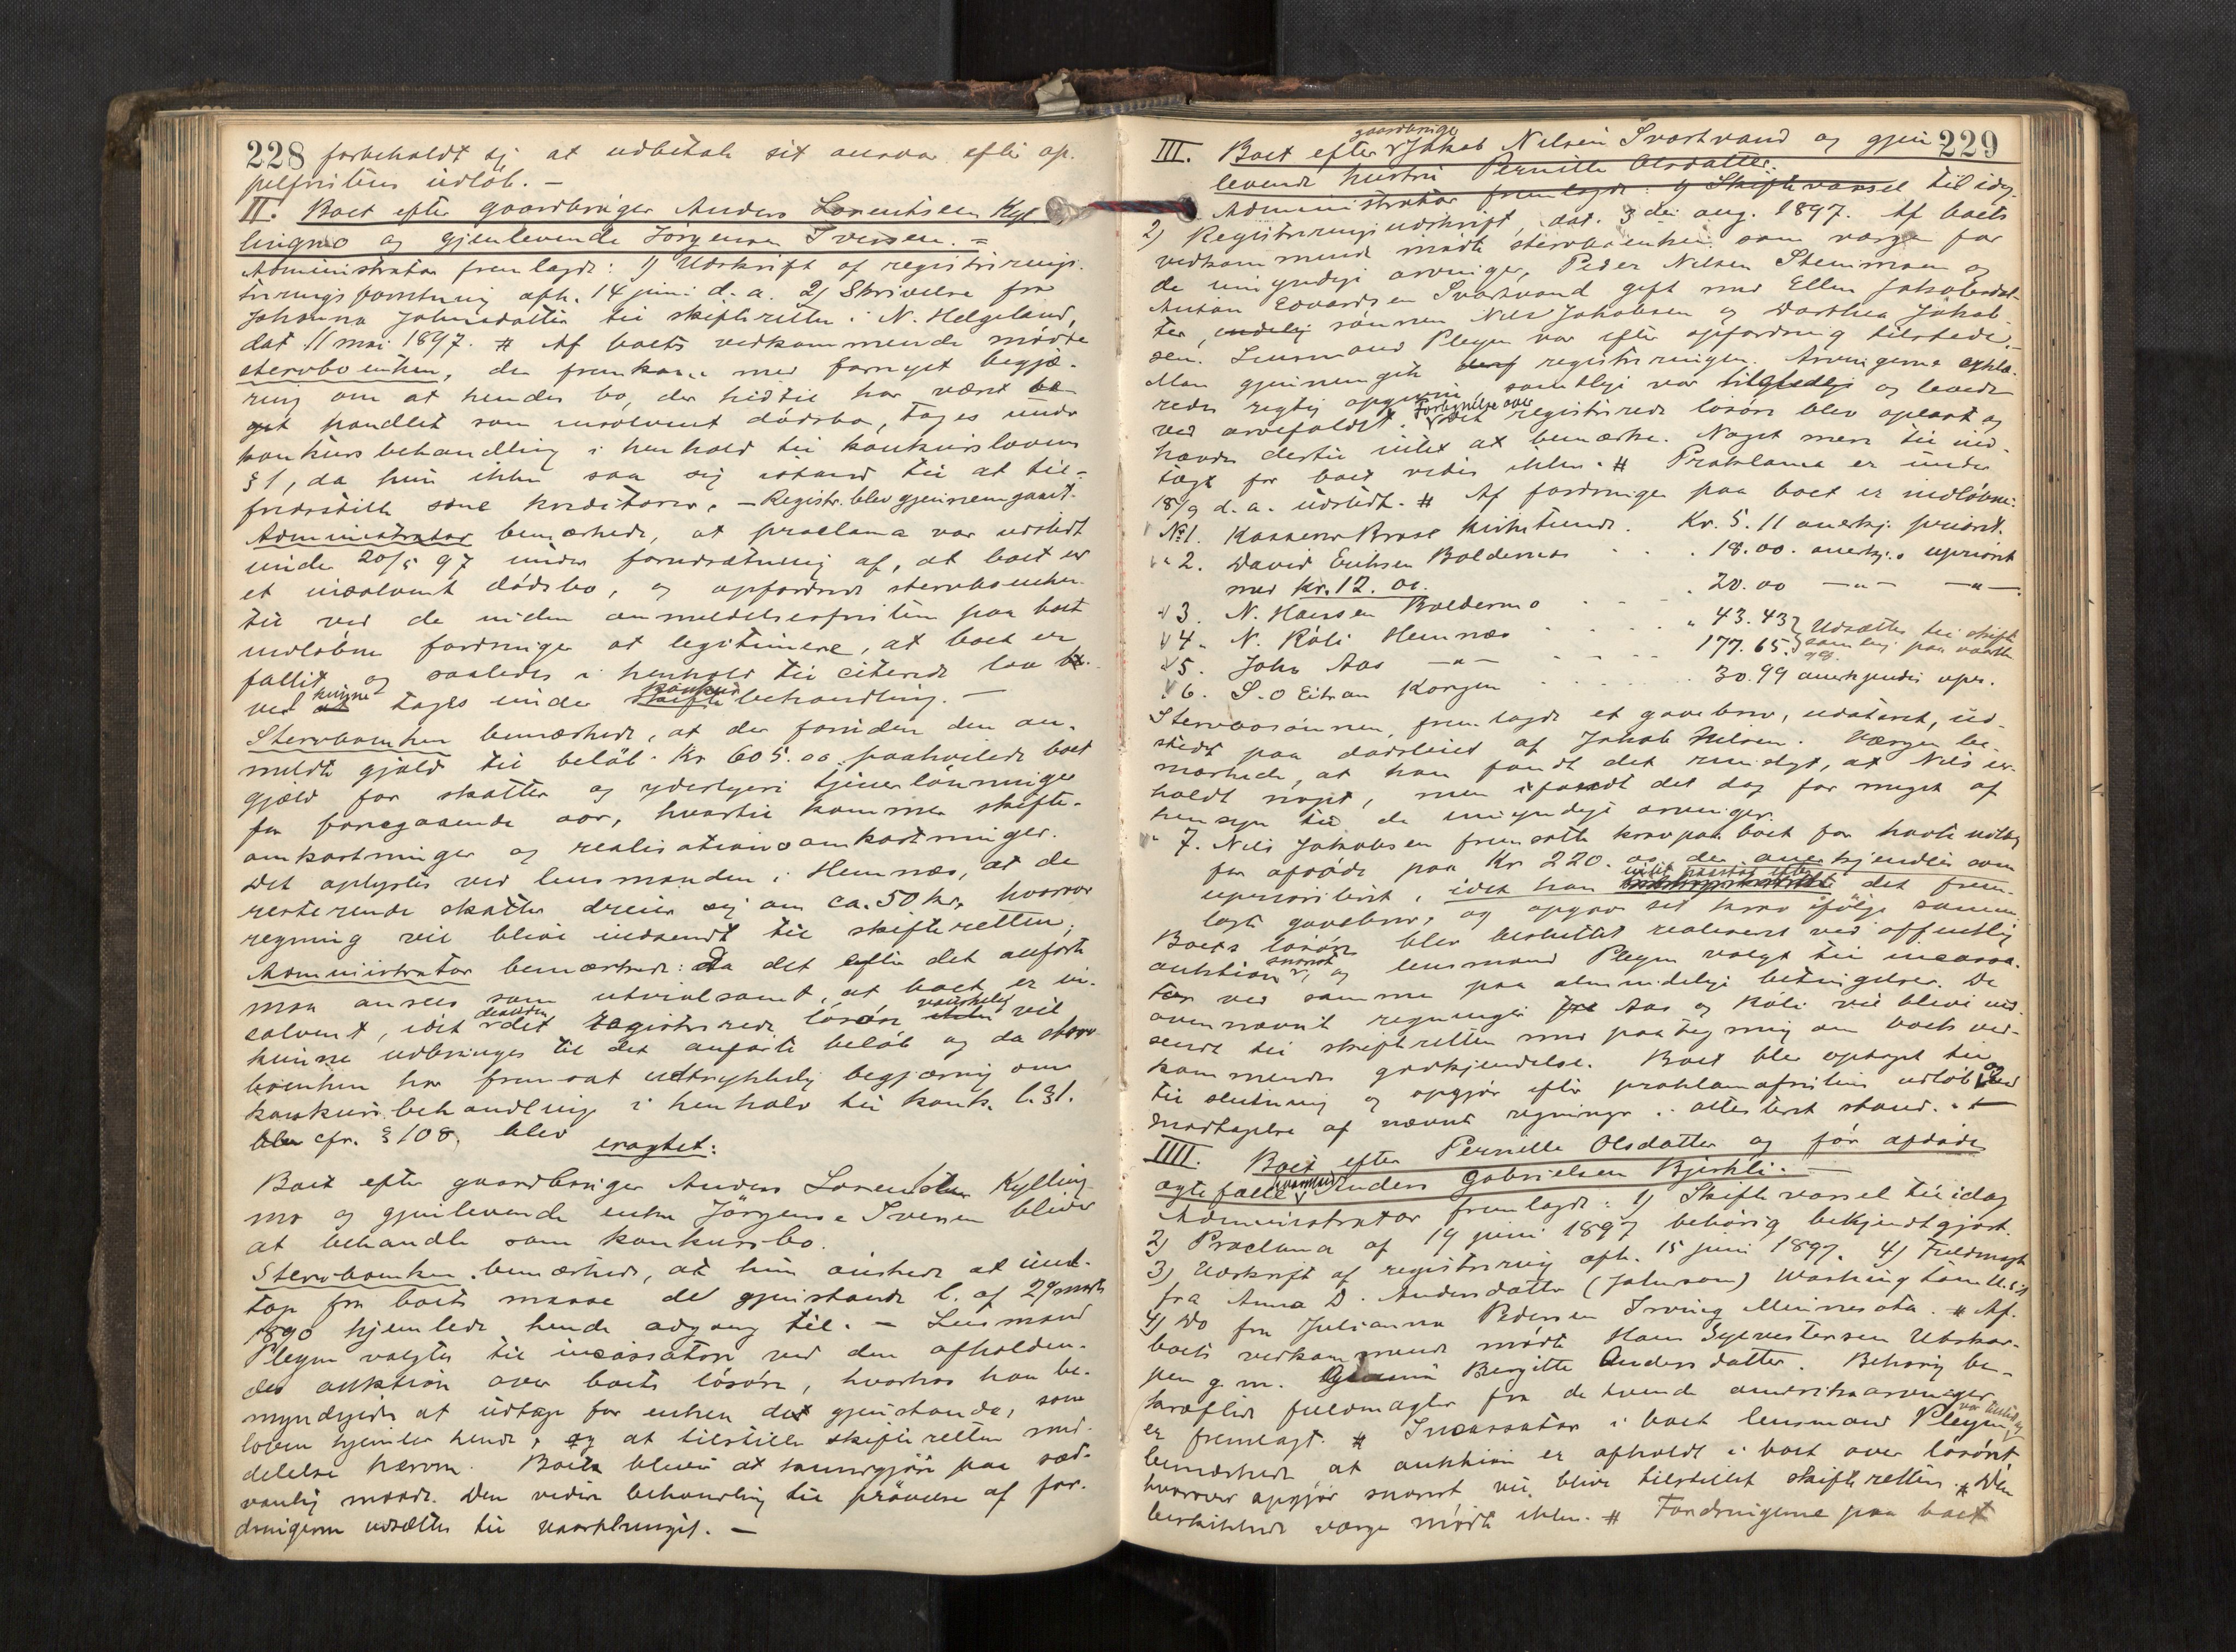 228 forbeholdt sig at udbetale sit ansvar efter ap-
pelfristens udløb. —
II. Boet efter gaardbruger Anders Lorentsen Kyl-
lingmo og gjenlevende Jørgensen Iversen. =
Administrator fremlagde: 1) Udskrift af registrerings-
tnings forretning afh. 14 juni d. a. 2) Skrivelse fra
Johanna Johnsdatter til skifteretten i N. Helgeland,
dat 11 mai 1897. # Af boets vedkommende mødte
stervboenken, der fremkom med fornyet begjæ-
ring om at hendes bo, der hidtil har været be-
handlet som insolvent dødsbo, tages under
konkursbehandling i henhold til konkurslovens
§ 1, da hun ikke saa sig istand til at til-
fredsstille sine kreditorer. — Registr. blev gjennemgaaet.
Administrator bemærkede, at proclama var udstedt
under 20/5 97 under forudsætning af, at boet er
et insolvent dødsbo, og opfordrede stervboenken
til ved de inden anmeldelsesfristen paa boet
indløbne fordringer at legitimere, at boet er
fallit og saaledes i henhold til citerede lov
ved kunne tages under konkurs behandling. —
Stervboenken bemærkede, at der foruden den an-
meldte gjæld til beløb Kr 605.00 paahvilede boet
gjæld for skatter og yderligere tjenerlønninger
fra foregaaende aar, hvortil kommer skifte-
omkostninger og realisationsomkostninger.
Det oplystes ved lensmanden i Hemnæs, at de
resterende skatter dreier sig om ca. 50 kr, hvorover
regning vil blive indsendt til skifteretten.
Administrator bemærkede: Da det efter det anførte
maa ansees som utvivlsomt, at boet er in-
solvent, idet desuden det registrerede løsøre vanskelig vil
kunne udbringes til det anførte beløb og da sterv-
boenken har fremsat udtrykkelig begjæring om
konkursbehandling i henhold til konk. l. § 1.
cfr. § 108, blev
eragtet:
Boet efter gaardbruger Anders Lorentsen Kylling-
mo og gjenlevende enke Jørgense Iversen bliver
at behandle som konkursbo.
Stervboenken bemærkede, at hun ønskede at und-
tage fra boets masse de gjenstande l. af 29 marts
1890 hjemlede hende adgang til. — Lensmand
Pleym valgtes til incassator ved den afholden-
des auktion over boets løsøre, hvorhos han be-
myndigedes at udtage for enken de gjenstande, som
loven hjemler hende, og at tilstille skifteretten med-
delelse herom. Boet bliver at kundgjøre paa sæd-
vanlig maade. Den videre behandling til prøvelse af for-
dringerne udsættes til vaarthinget. —
229
III. Boet efter gaardbruger Jakob Nilsen Svartvand og gjen-
levende hustru Pernille Olsdatter.
Administrator fremlagde: 1) Skiftevarsel til idag.
2) Registreringsudskrift, dat. 3die aug. 1897. Af boets
vedkommende mødte stervboenken som værge for
de umyndige arvinger, Peder Nilsen Stenmoen og
Anton Edvardsen Svartvand gift med Ellen Jakobsdat-
ter, endelig sønnen Nils Jakobsen og Dorthea Jakob-
sen. Lensmand Pleym var efter opfordring tilstede. —
Man gjennemgik registreringen. Arvingerne erklæ-
redes rigtig opgivne samtlige var tilstede og levede
ved arvefaldet. Fortegnelse over det registrerede løsøre blev oplæst og
havdes dertil intet at bemærke. Noget mere til ind-
tægt for boet vides ikke. # Proklama er under
18/9 d. a. udstedt. # Af fordringer paa boet er indløbne:
№ 1. Kasserer Brose Kirketunde. Kr. 5.11 anerkj. priorit.
" 2. David Eriksen Boldermo . . . 18.00. anerkj. uprioit
med Kr. 12.00.
" 3. N. Hansen Boldermo . . . 20.00 —"— —"—
" 4. N. Røli Hemnæs . . . " 43.43 } Udsættes til skifte-
" 5. John Aas —"— . . . 177.65. } samling paa vaarth
" 6. S. O Eitran Korgen . . . 30.99 anerkjendes upr.
Stervbosønnen, fremlagde et gavebrev, udateret, ud-
stedt paa dødsleiet af Jakob Nilsen. Værgen be-
mærkede, at han fandt det rimeligt, at Nils er-
holdt noget, men fandt det dog for meget af
hensyn til de umyndige arvinger.
" 7. Nils Jakobsen fremsatte krav paa boet for havte udlæg
for afdøde paa Kr 220.00, der anerkjendtes som
uprioriteret, idet han det frem-
lagte gavebrev, og opgav sit krav ifølge samme.
Boets løsøre blev besluttet realiseret ved offentlig
auktion snarest, og lensmand Pleym valgt til incassa-
tor ved samme paa almindelige betingelser. De
ovennævnte regninger fra Aas og Røli vil blive ind-
sendt til skifteretten med paategning om boets ved-
kommendes godkjendelse. Boet blev optaget til
til slutning og opgjør efter proklamafristens udløb og ved
modtagelse af nævnte regninger i attesteret stand. —
IIII. Boet efter Pernille Olsdatter og før afdøde
ægtefælle Anders Gabrielsen Bjerkli. —
Administrator fremlagde: 1) Skiftevarsel til idag
2) Proclama af 19 juni 1897 behørig bekjendtgjort.
3) Udskrift af registrering afh. 15 juni 1897. 4) Fuldmagt
fra Anna D. Andersdatter (Johnson) Washington U.S.
4) Do fra Julianna Pedersen Irving Minnesota. # Af
boets vedkommende mødte Hans Sylvestersen Utskar-
pen g. m. Bergitte Andersdatter. Behørig be-
kræftede fuldmagter fra de tvende amerikaarvinger
er fremlagt. # Incassator i boet lensmand Pleym var tilstede og
bemærkede, at auktion er afholdt i boet over løsøret,
hvorover opgjør snarest vil blive tilstillet skifteretten. # Den
beskikkede værge mødte ikke. # Fordringerne paa boet